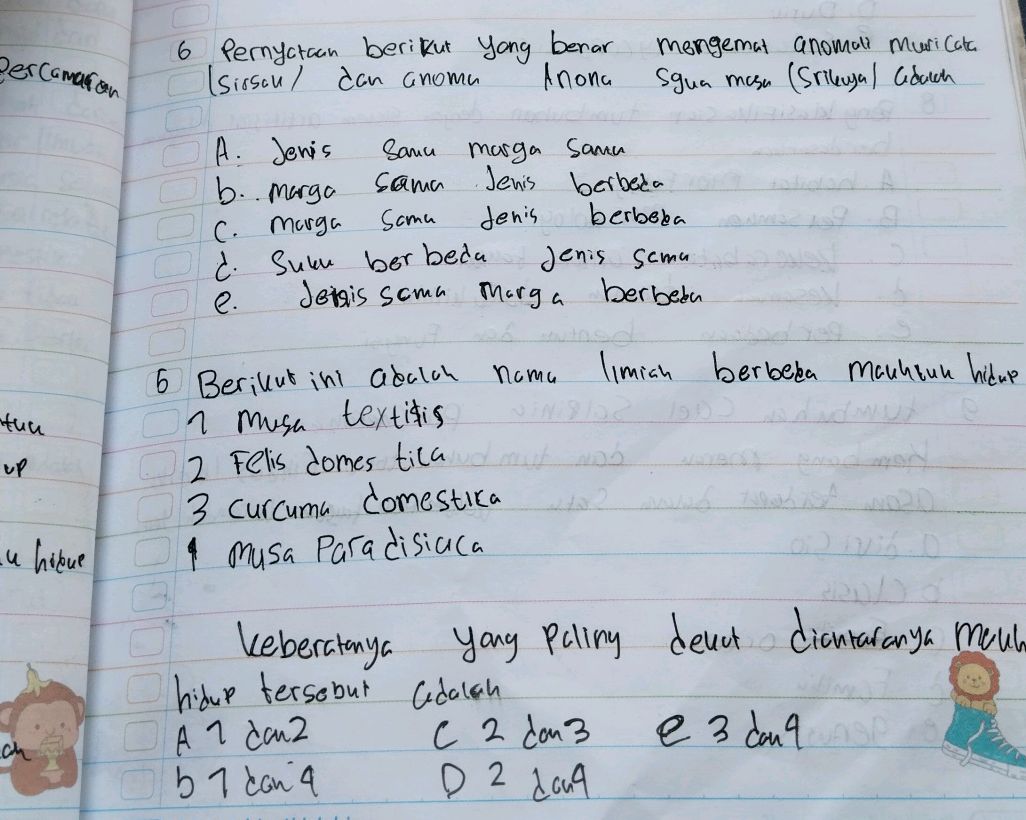 percamaran
6 Pernyataan berikut yang benar mengemat anomali muricata
(Sirsau) dan anoma Anona Sgua mosa (Srikuya) adalah
A. Jenis sama marga sama
b. marga sama Jenis berbeda
c. marga sama Jenis berbeba
d. Suku ber beda Jenis sama
e. Jenis sama Marga berbeba
6 Berikut ini adalah nama limiah berbeba mauhluk hidup
1 Musa textilis
2 Felis domes tica
3 curcuma domestika
4 Musa Paradisiaca
up
u hidup
keberatanya yang paling dekat diantaranya mauh
hidup tersebut adalah
A 1 dan 2 C 2 dan 3 e 3 dan 4
b 1 dan 4 D 2 dan 4
ah